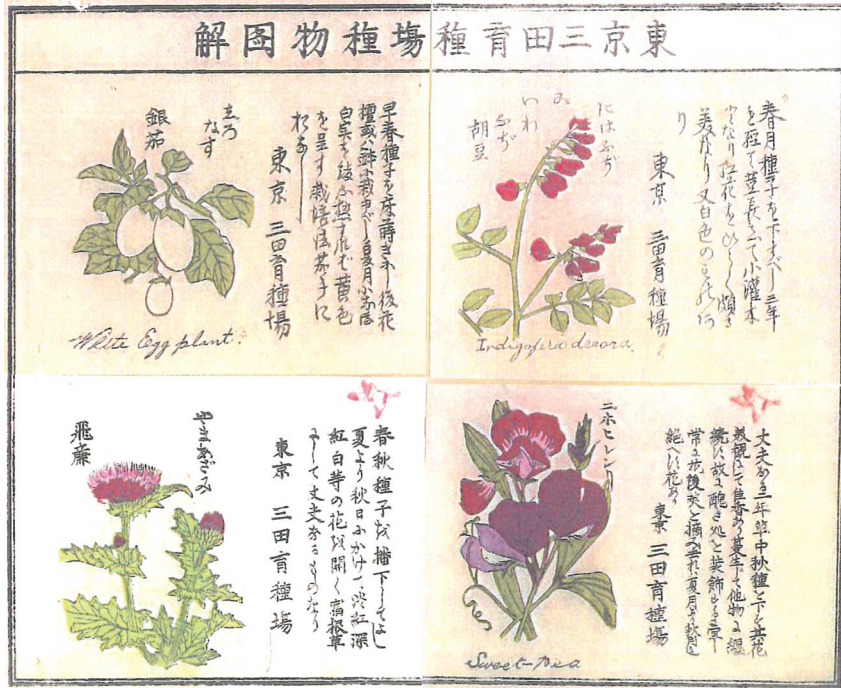 東京三田育種塲種物图解
春月種子を下すべし二年
を経て莖長して小灌木
となり紅花をひらく頗る
美なり又白色のもの
り
東京 三田育種場
にはふぢ
いわ
ふぢ
胡豆
Indigofera decora.
早春種子を床蒔きにし後花
壇或ハ鉢に栽ゆべし夏月小なる
白実を結ぶ熟すれば黄色
を呈す栽培法茄子に
おなじ
東京 三田育種場
しろ
なす
銀茄
White Egg plant.
丈夫なる二年草中秋種を下す其花
美観にして佳香あり蔓生して他物に纏
繞す故に醜き処を装飾するに宜し
常に 莢を摘み去れハ夏月より秋間
花あり
東京 三田育種場
ニホヒレンリ
Sweet-Pea
春秋種子を播下してよし
夏より秋日にかけて淡紅深
紅白等の花を開く宿根草
にして丈夫なるものなり
東京 三田育種場
やまあざみ
飛廉